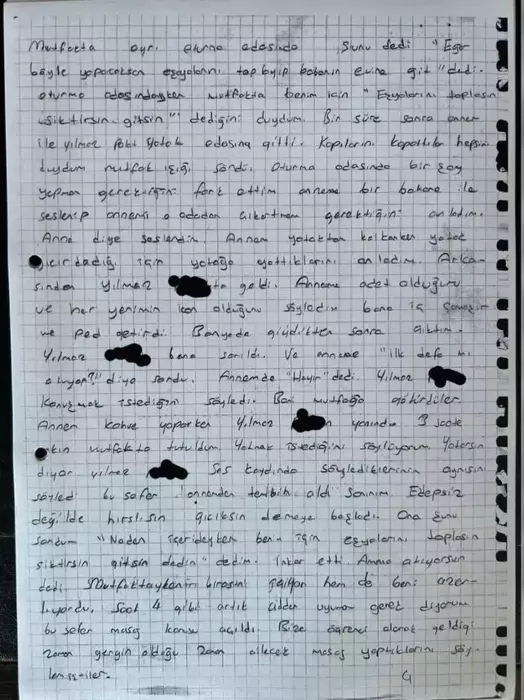 Mutfakta ayrı oturma odasında Şunu dedi "Eğer
böyle yapacaksan eşyalarını toplayıp babanın evine git" dedi.
oturma odasındayken mutfakta benim için "Eşyalarını toplasın
siktirsin gitsin" dediğini duydum. Bir süre sonra annem
ile yılmaz yatak odasına gitti. Kapıların kapattılar hepsini
duydum mutfak ışığı söndü. Oturma odasında bir şey
yapmam gerektiğini fark ettim anneme bir bahane ile
seslenip annemi o odadan çıkartmam gerektiğini anladım.
Anne diye seslendim. Annem yataktan kalkarken yatak
gıcırdadığı için yatağa yattıklarını anladım. Arka-
sından Yılmaz da geldi. Anneme adet olduğumu
ve her yerimin kan olduğunu söyledim bana iç çamaşır
ve ped getirdi. Banyoda giydikten sonra çıktım.
Yılmaz bana sarıldı. Ve anneme "ilk defa mı
oluyor?" diye sordu. Annemde "Hayır" dedi. Yılmaz
konuşmak istediğini söyledi. Beni mutfağa götürdüler.
Annem kahve yaparken Yılmaz yanında 3 saate
yakın mutfakta tutuldum. Yatmak istediğimi söylüyorum Yatarsın
diyor yılmaz Ses kaydında söylediklerinin aynısını
söyledi bu sefer annenden tembih aldı sanırım Edepsiz
değilde hırslısın demeye başladı. Ona şunu
sordum "Neden içerideyken benim için eşyalarını toplasın
siktirsin gitsin dedin" dedim. İnkar etti Amma atıyorsun
dedi. Mutfaktayken hem de beni azar-
lıyordu. Saat 4 gibi artık cidden uyumam gerek diyorum
bu sefer masaj konusu açıldı. Bize öğrenci olarak geldiği
zaman gergin olduğu zaman ailecek masaj yaptıklarını söy-
lemişler. 4